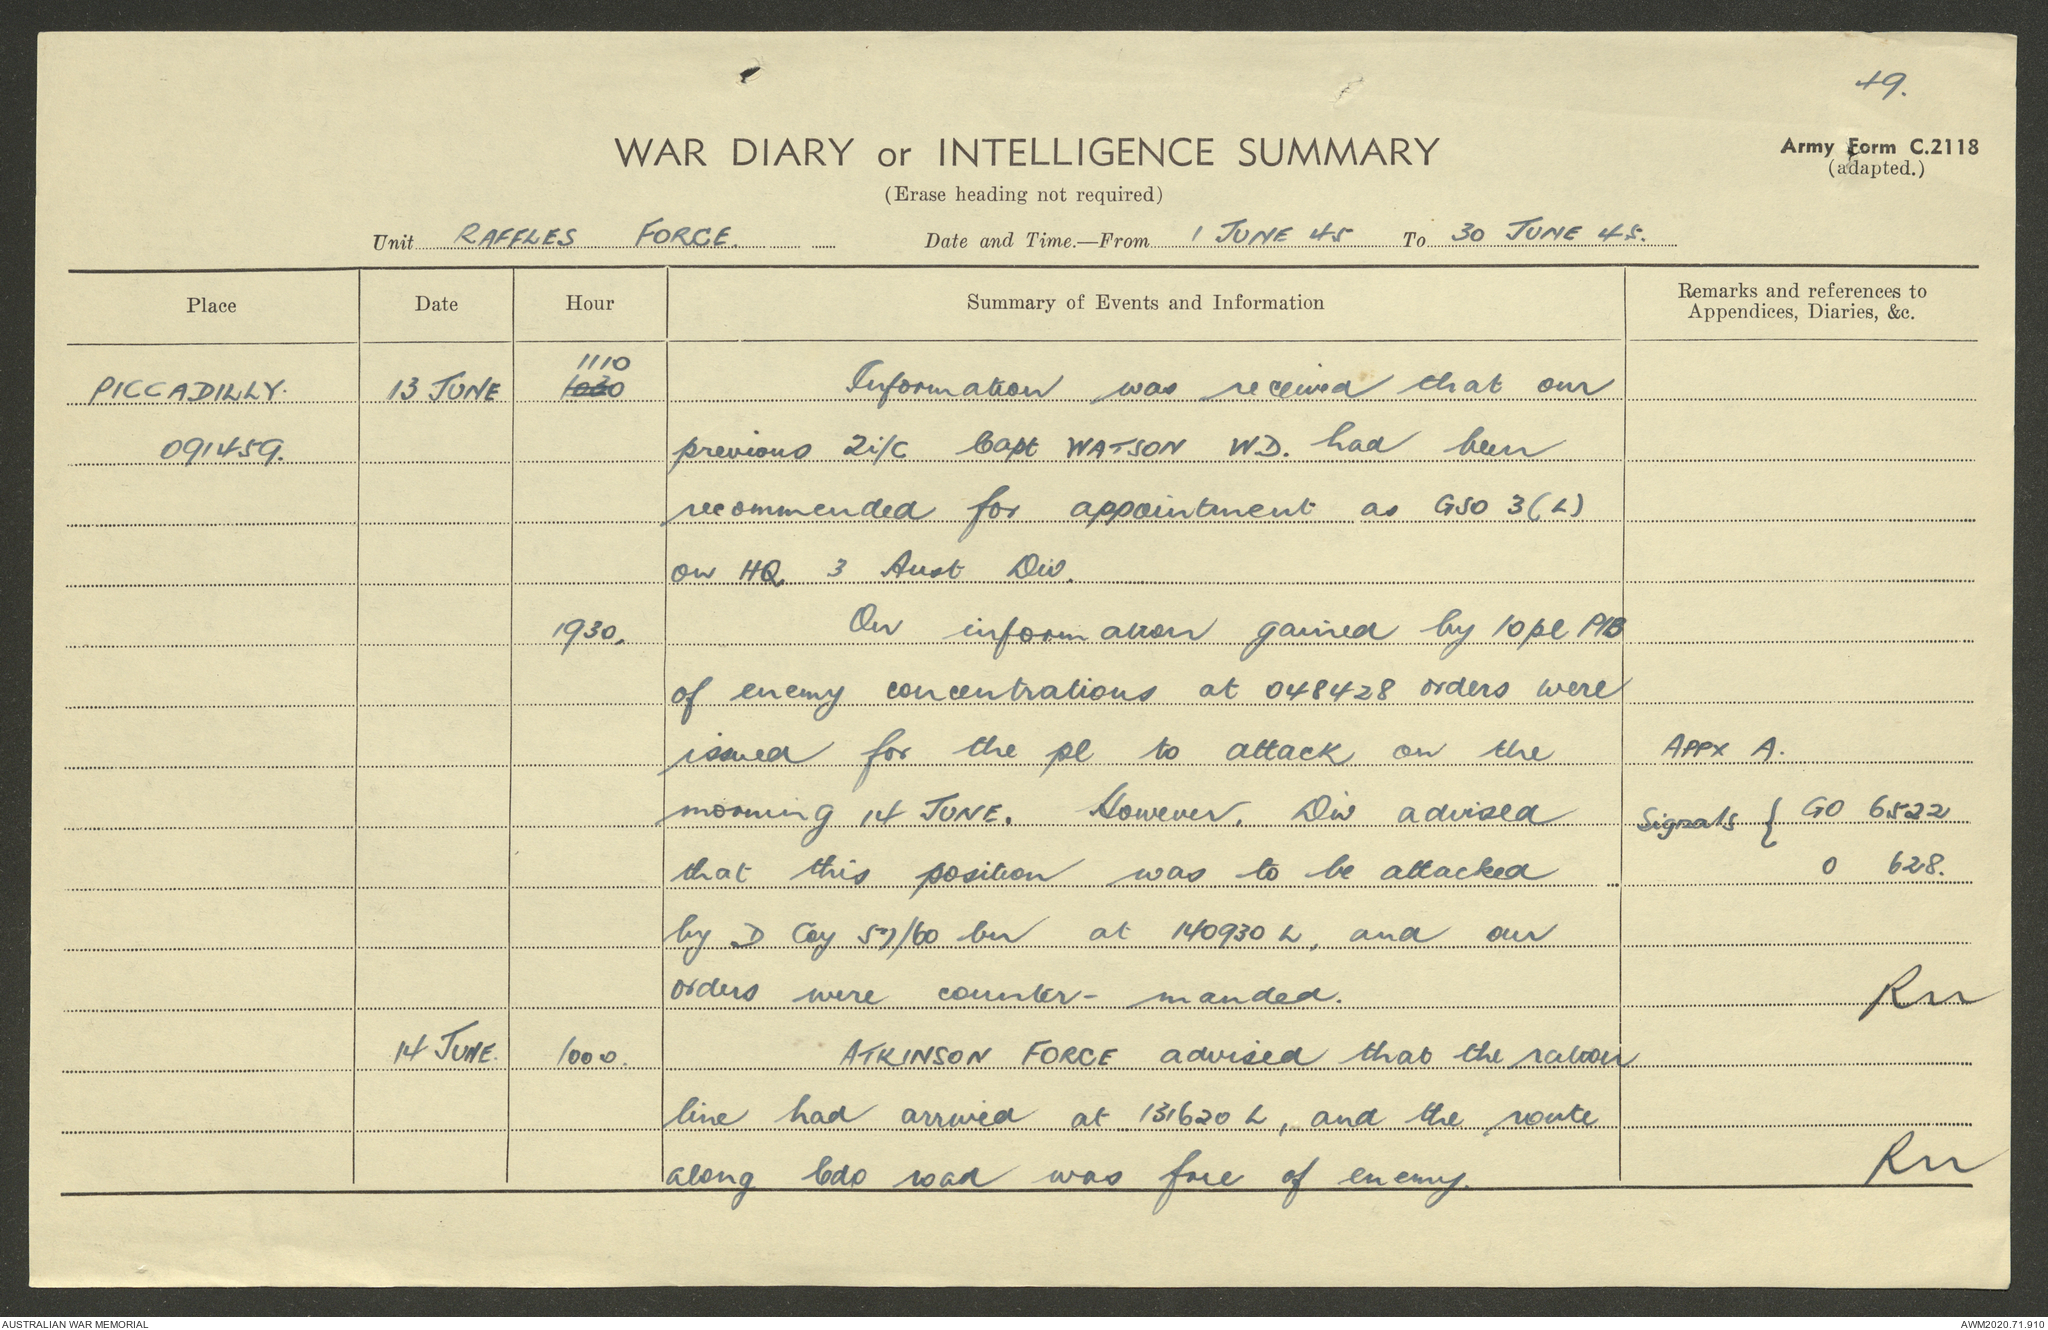 49.
WAR DIARY or INTELLIGENCE SUMMARY
Army Form C.2118
(adapted.)
(Erase heading not required)
Unit RAFFLES FORCE. Date and Time.—From 1 JUNE 45 To 30 JUNE 45.
Place Date Hour Summary of Events and Information Remarks and references to Appendices, Diaries, &c.
1110
PICCADILLY. 13 JUNE 1030 Information was received that our
091459. previous 2i/c Capt WATSON WD. had been
recommended for appointment as GSO 3(L)
on HQ 3 Aust Div.
1930. On information gained by 10 pl PIB
of enemy concentrations at 048428 orders were
issued for the pl to attack on the APPX A.
morning 14 JUNE. However, Div advised Signals { GO 6522
that this position was to be attacked O 628.
by D Coy 57/60 bn at 140930 L, and our
orders were counter-manded.
14 JUNE. 1000. ATKINSON FORCE advised that the ration
line had arrived at 131620 L, and the route
along Cdo road was free of enemy.